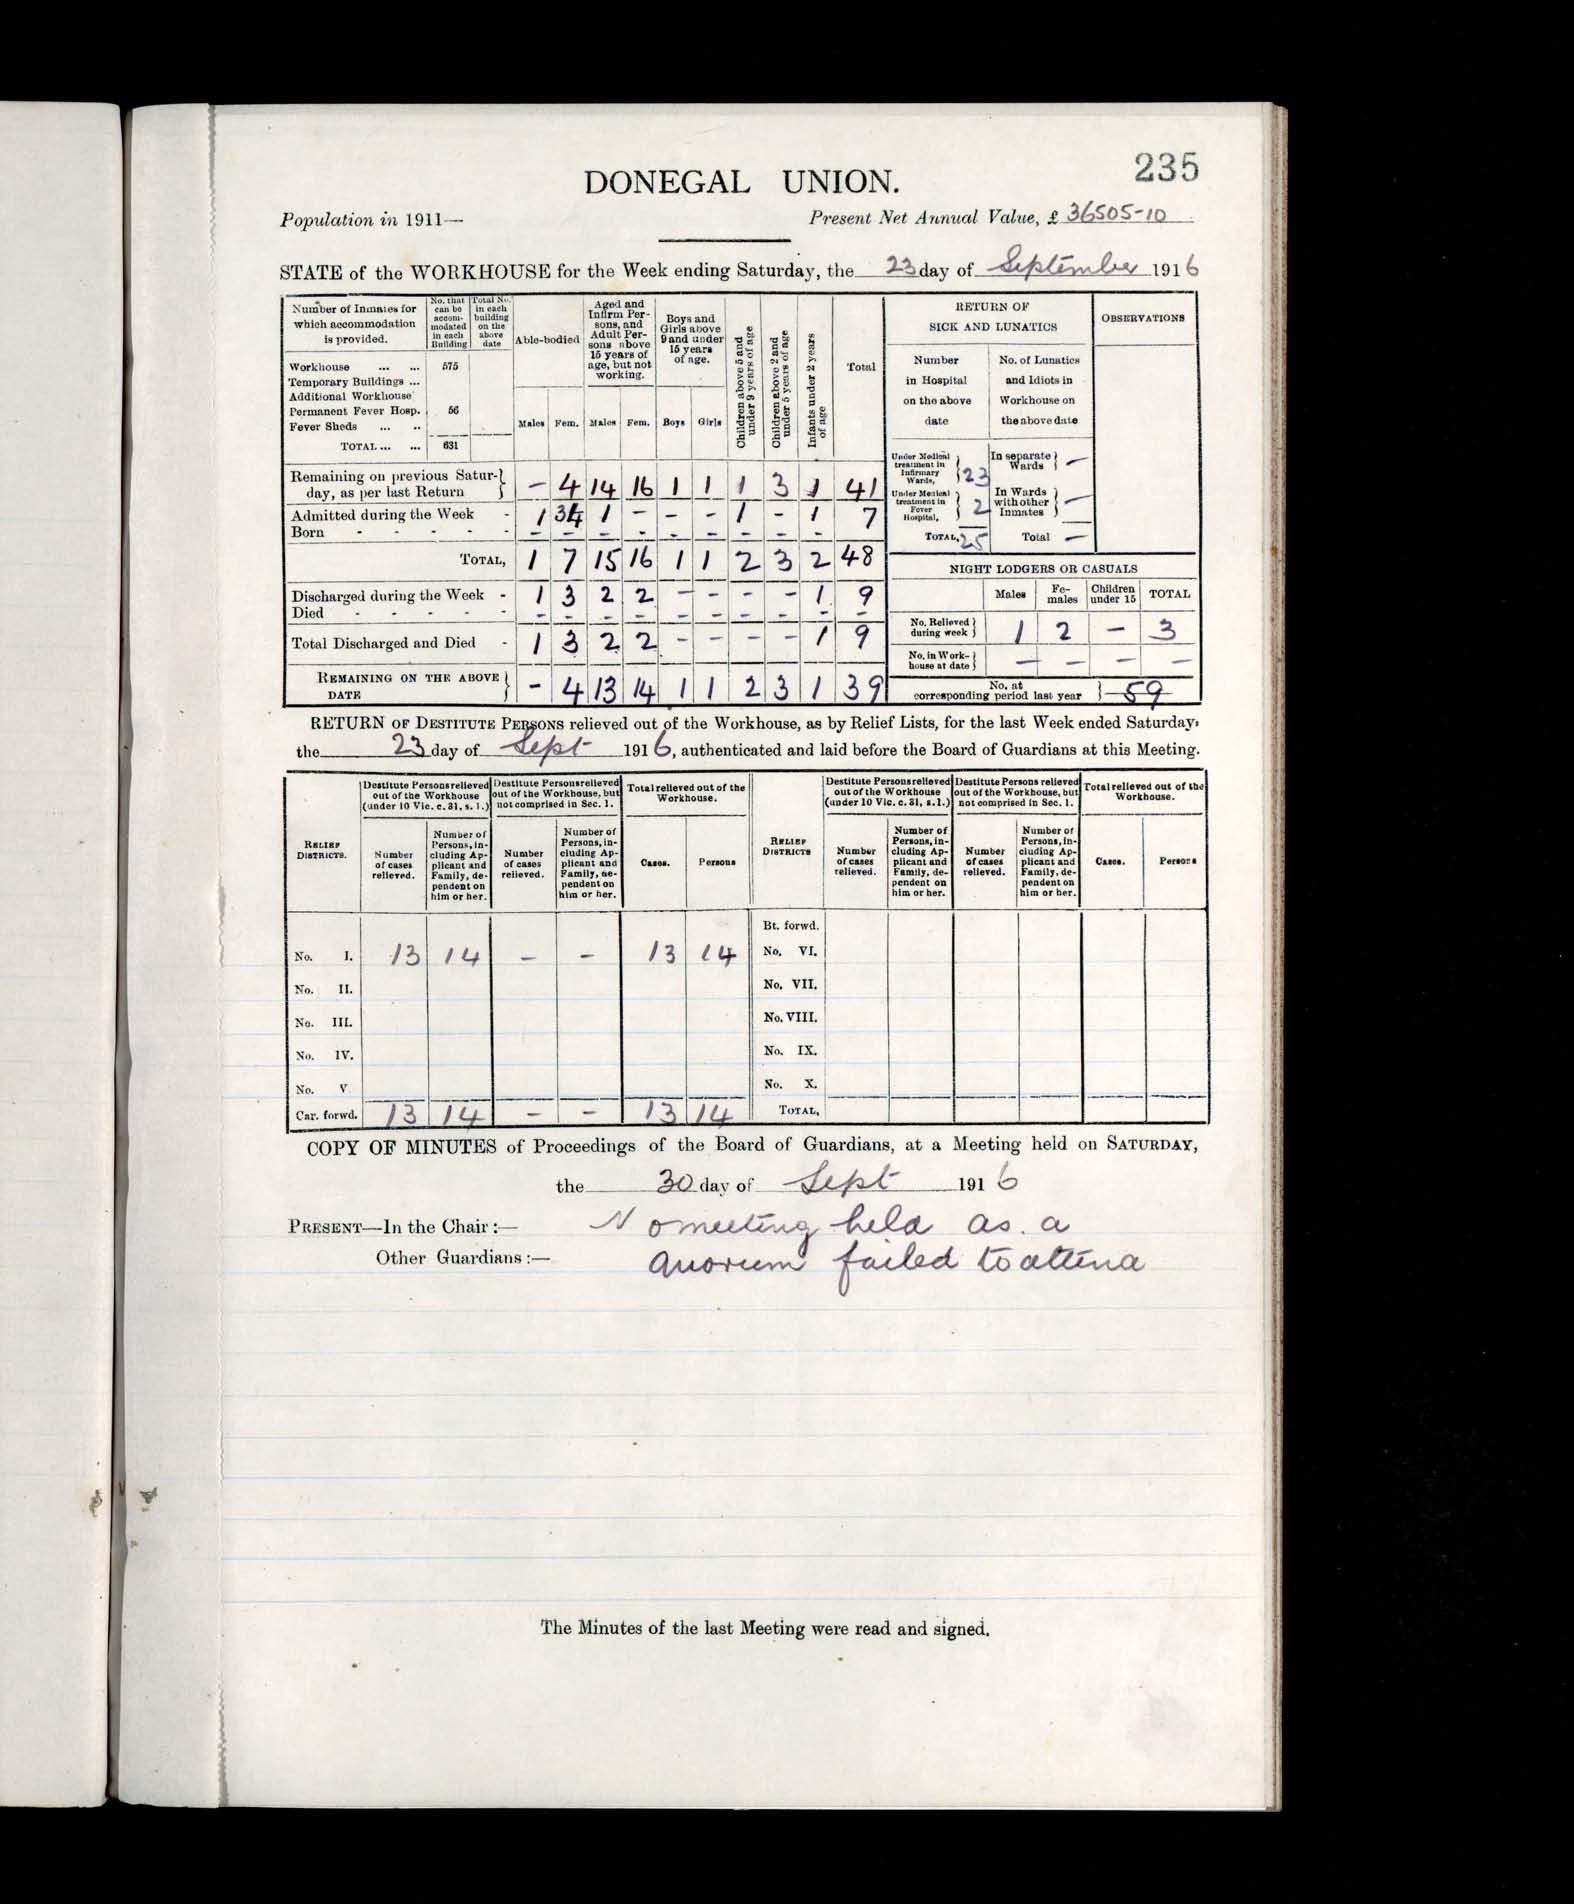 235
DONEGAL UNION.
Population in 1911— Present Net Annual Value, £ 36505-10
STATE of the WORKHOUSE for the Week ending Saturday, the 23 day of September 1916
Number of Inmates for which accommodation is provided. | No. that can be accom-modated in each Building | Total No. in each building on the above date | Able-bodied | Aged and Infirm Per-sons, and Adult Per-sons above 15 years of age, but not working. | Boys and Girls above 9 and under 15 years of age. | Children above 5 and under 9 years of age | Children above 2 and under 5 years of age | Infants under 2 years of age | Total
Males Fem. Males Fem. Boys Girls
Workhouse ... ... 575
Temporary Buildings ...
Additional Workhouse
Permanent Fever Hosp. 56
Fever Sheds ... ..
TOTAL ... ... 631
Remaining on previous Satur-day, as per last Return } – 4 14 16 1 1 1 3 1 41
Admitted during the Week - 1 34 1 – – – 1 – 1 7
Born - - - - - – – – – – – – – –
TOTAL, 1 7 15 16 1 1 2 3 2 48
Discharged during the Week - 1 3 2 2 – – – – 1 9
Died - - - - - – – – – – – – – – –
Total Discharged and Died - 1 3 2 2 – – – – 1 9
REMAINING ON THE ABOVE DATE } – 4 13 14 1 1 2 3 1 39
RETURN OF
SICK AND LUNATICS
OBSERVATIONS
Number in Hospital on the above date | No. of Lunatics and Idiots in Workhouse on the above date
Under Medical treatment in Infirmary Wards, } 23 | In separate Wards } –
Under Medical treatment in Fever Hospital, } 2 | In Wards with other Inmates } –
TOTAL, 25 | Total –
NIGHT LODGERS OR CASUALS
Males Fe-males Children under 15 TOTAL
No. Relieved during week } 1 2 – 3
No. in Work-house at date } – – – –
No. at corresponding period last year } 59
RETURN OF DESTITUTE PERSONS relieved out of the Workhouse, as by Relief Lists, for the last Week ended Saturday,
the 23 day of Sept 1916, authenticated and laid before the Board of Guardians at this Meeting.
RELIEF DISTRICTS. | Destitute Persons relieved out of the Workhouse (under 10 Vic. c. 31, s. 1.) | Destitute Persons relieved out of the Workhouse, but not comprised in Sec. 1. | Total relieved out of the Workhouse. | RELIEF DISTRICTS | Destitute Persons relieved out of the Workhouse (under 10 Vic. c. 31, s. 1.) | Destitute Persons relieved out of the Workhouse, but not comprised in Sec. 1. | Total relieved out of the Workhouse.
Number of cases relieved. | Number of Persons, in-cluding Ap-plicant and Family, de-pendent on him or her. | Number of cases relieved. | Number of Persons, in-cluding Ap-plicant and Family, de-pendent on him or her. | Cases. | Persons | Number of cases relieved. | Number of Persons, in-cluding Ap-plicant and Family, de-pendent on him or her. | Number of cases relieved. | Number of Persons, in-cluding Ap-plicant and Family, de-pendent on him or her. | Cases. | Persons
Bt. forwd.
No. I. 13 14 – – 13 14 No. VI.
No. II. No. VII.
No. III. No. VIII.
No. IV. No. IX.
No. V No. X.
Car. forwd. 13 14 – – 13 14 TOTAL,
COPY OF MINUTES of Proceedings of the Board of Guardians, at a Meeting held on SATURDAY,
the 30 day of Sept 1916
PRESENT—In the Chair :— No meeting held as a
Other Guardians :— Quorum failed to attend
The Minutes of the last Meeting were read and signed.